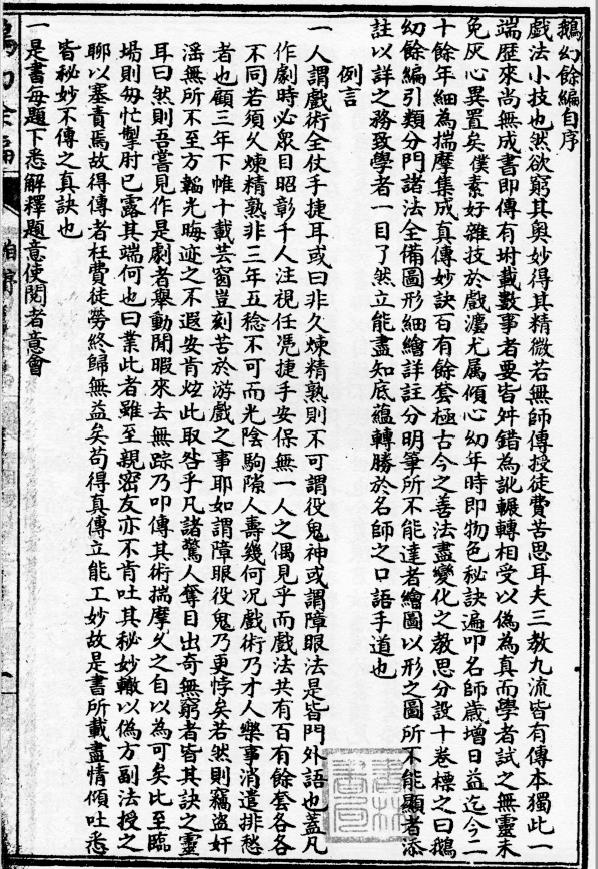 鵝幻餘編自序
戲法小技也然欲窮其奧妙得其精微若無師傳授徒費苦思耳夫三教九流皆有傳本獨此一
端歷來尚無成書即傳有坿載數事者要皆舛錯為訛輾轉相受以偽為真而學者試之無靈未
免灰心異置矣僕素好雜技於戲灋尤属傾心幼年時即物色秘訣遍叩名師歲增日益迄今二
十餘年細為揣摩集成真傳妙訣百有餘套極古今之善法盡變化之教思分設十卷標之曰鵝
幻餘編引類分門諸法全備圖形細繪詳註分明筆所不能達者繪圖以形之圖所不能顯者添
註以詳之務致學者一目了然立能盡知底蘊轉勝於名師之口語手道也
例言
一人謂戲術全仗手捷耳或曰非久煉精熟則不可謂役鬼神或謂障眼法是皆門外語也蓋凡
作劇時必眾目昭彰千人注視任凭捷手安保無一人之偶見乎而戲法共有百有餘套各各
不同若須久煉精熟非三年五稔不可而光陰駒隙人壽幾何況戲術乃才人樂事消遣排愁
者也顧三年下帷十載芸窗豈刻苦於游戲之事耶如謂障眼役鬼乃更悖矣若然則竊盜奸
淫無所不至方韜光晦迹之不遐安肯炫此取咎乎凡諸驚人奪目出奇無窮者皆其訣之靈
耳曰然則吾嘗見作是劇者舉動閒暇來去無踪乃叩傳其術揣摩久之自以為可矣比至臨
場則匆忙掣肘已露其端何也曰業此者雖至親密友亦不肯吐其秘妙轍以偽方副法授之
聊以塞責焉故得傳者枉費徒勞終歸無益矣苟得真傳立能工妙故是書所載盡情傾吐悉
皆秘妙不傳之真訣也
一是書每題下悉解釋題意使閱者意會